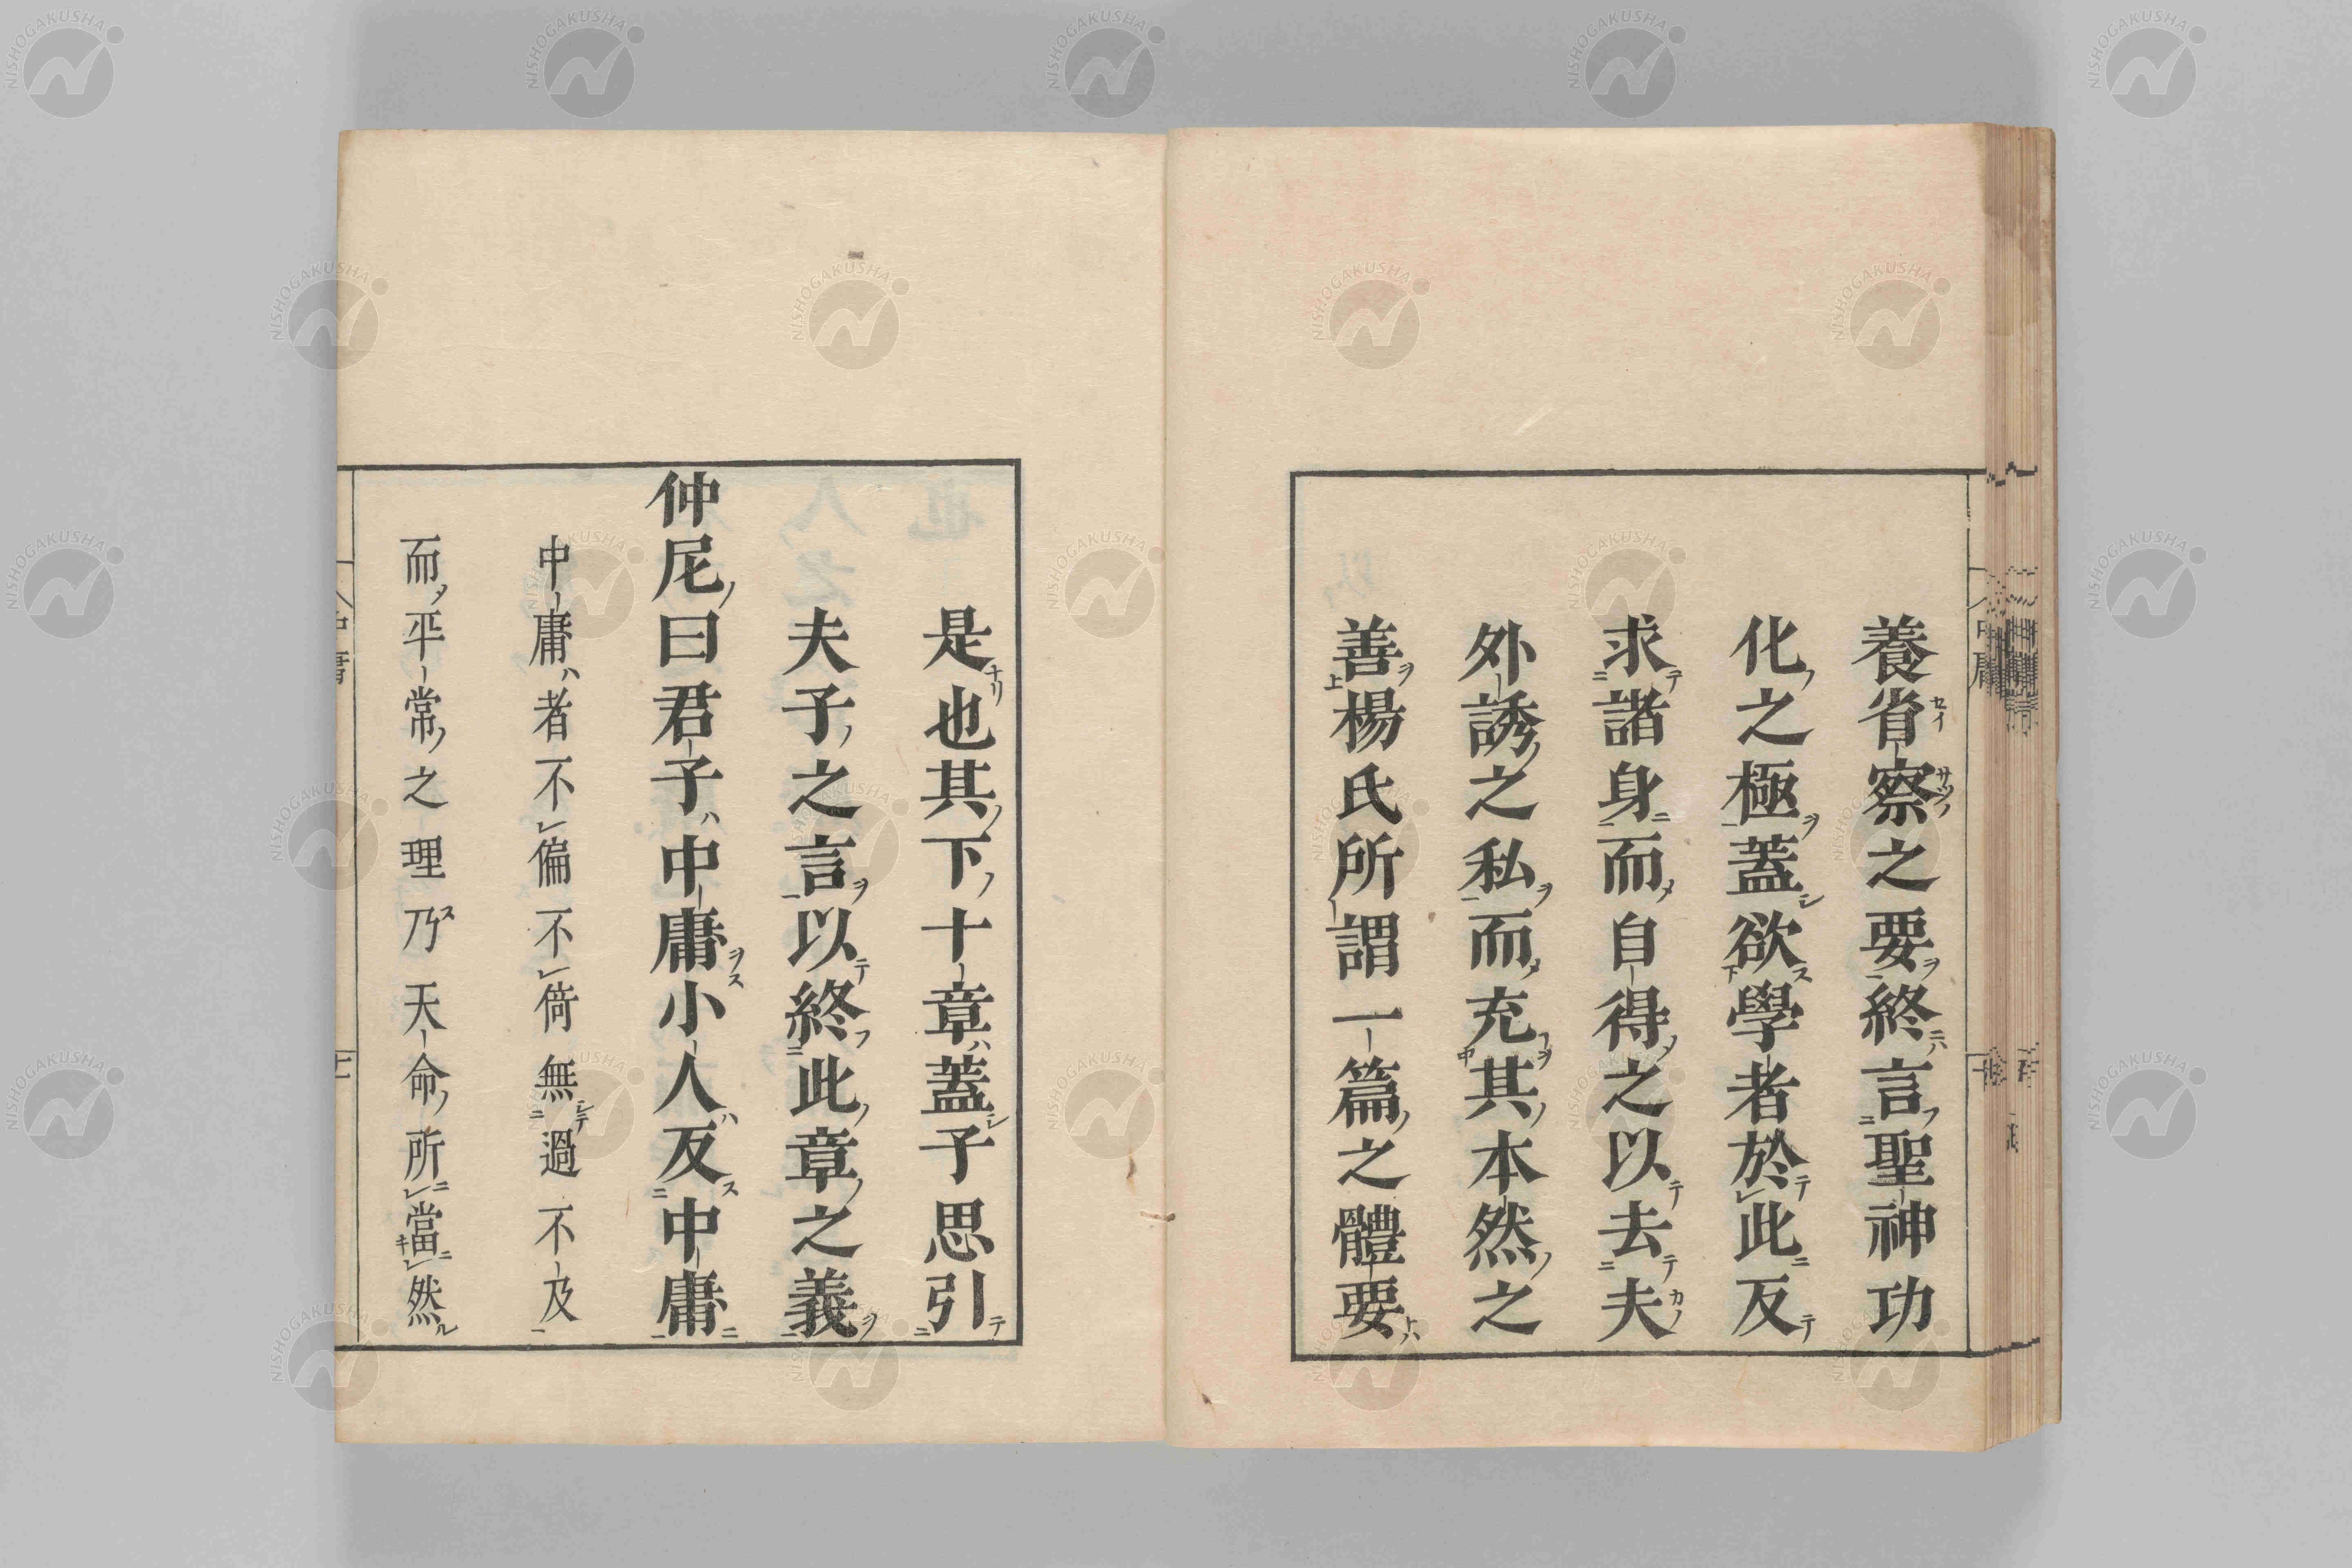 養省察之要終言聖神功
化之極蓋欲學者於此反
求諸身而自得之以去夫
外誘之私而充其本然之
善楊氏所謂一篇之體要
是也其下十章蓋子思引
夫子之言以終此章之義
仲尼曰君子中庸小人反中庸
中庸者不偏不倚無過不及
而平常之理乃天命所當然
中庸
NISHOGAKUSHA